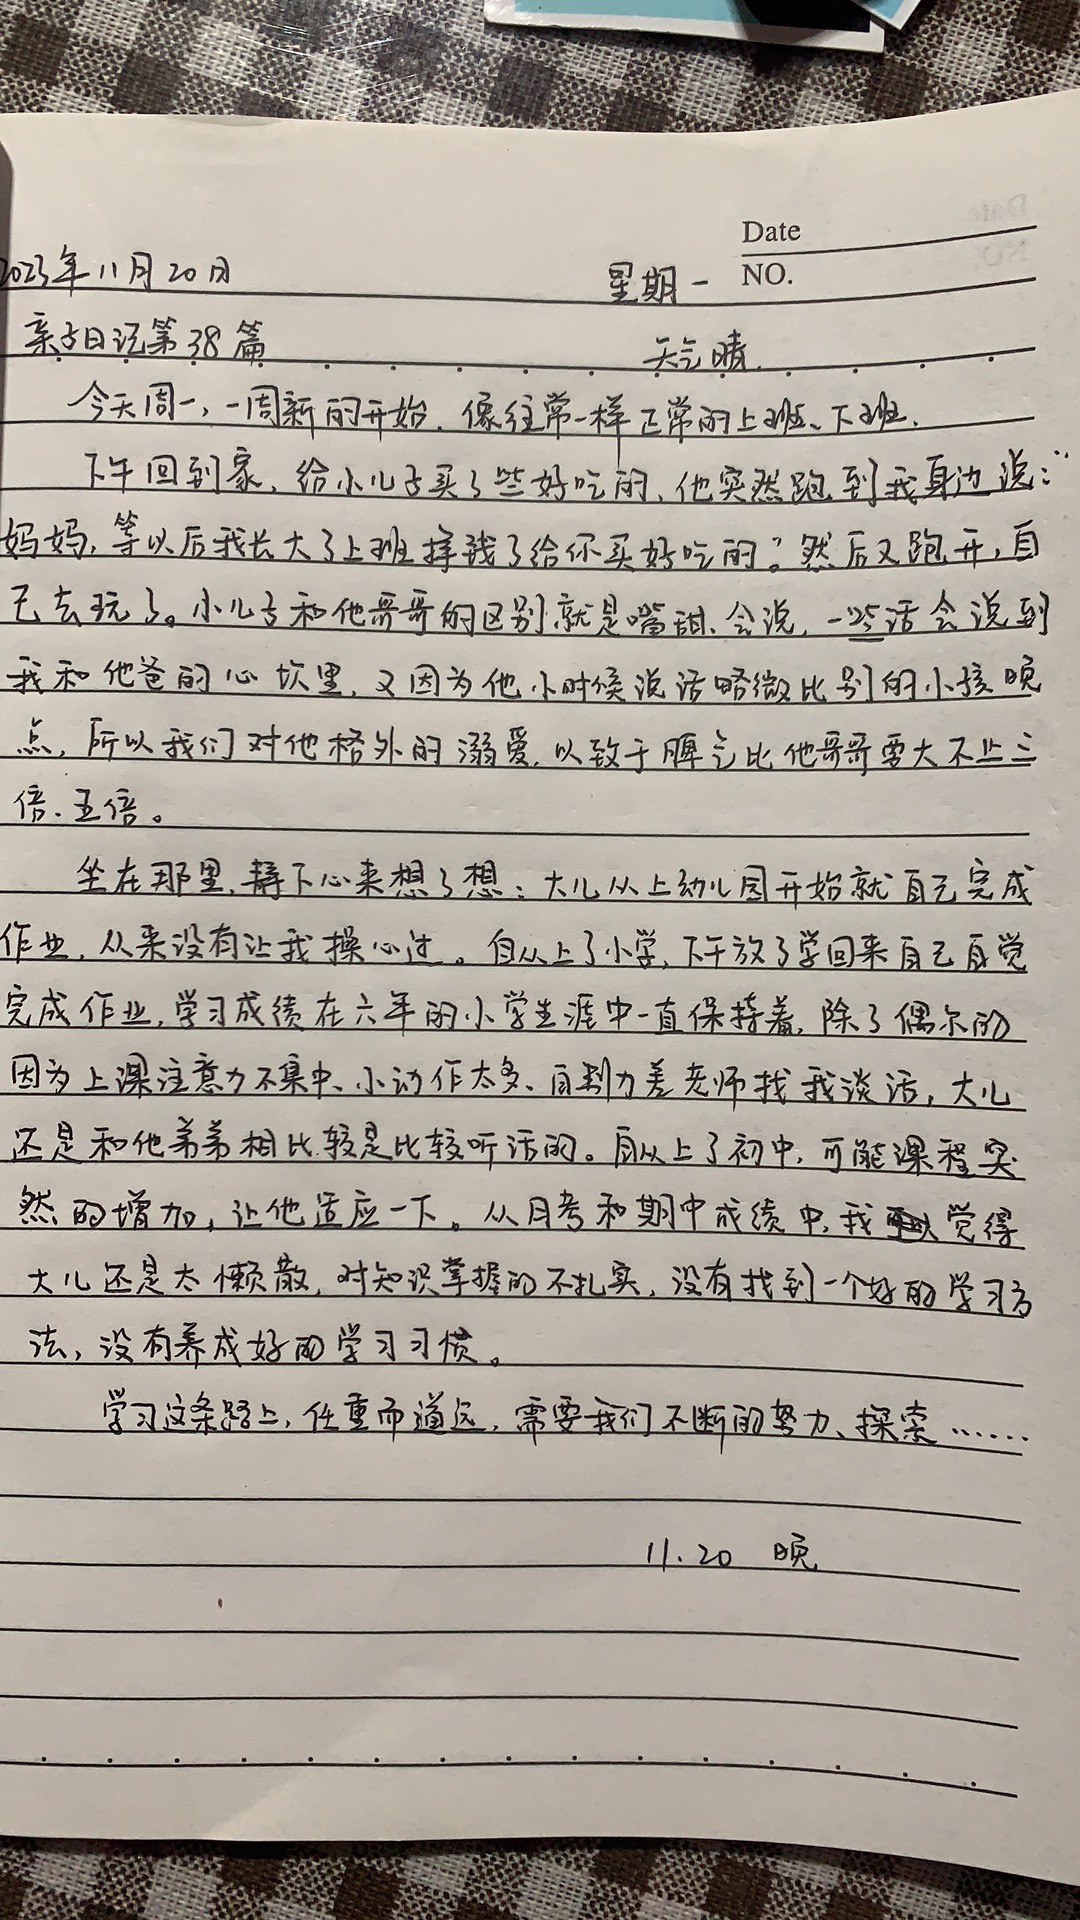 Date
2023年11月20日 星期一 NO.
亲子日记第38篇 天气晴.
今天周一,一周新的开始.像往常一样正常的上班、下班.
下午回到家,给小儿子买了些好吃的,他突然跑到我身边说:“
妈妈,等以后我长大了上班挣钱了给你买好吃的”。然后又跑开,自
己去玩了。小儿子和他哥哥的区别就是嘴甜、会说,一些话会说到
我和他爸的心坎里,又因为他小时候说话略微比别的小孩晚
点,所以我们对他格外的溺爱,以致于脾气比他哥哥要大不止三
倍、五倍。
坐在那里,静下心来想了想:大儿从上幼儿园开始就自己完成
作业,从来没有让我操心过。自从上了小学,下午放了学回来自己自觉
完成作业,学习成绩在六年的小学生涯中一直保持着,除了偶尔的
因为上课注意力不集中、小动作太多、自制力差老师找我谈话,大儿
还是和他弟弟相比较是比较听话的。自从上了初中,可能课程突
然的增加,让他适应一下。从月考和期中成绩中,我觉得
大儿还是太懒散,对知识掌握的不扎实,没有找到一个好的学习方
法,没有养成好的学习习惯。
学习这条路上,任重而道远,需要我们不断的努力、探索……
11.20 晚